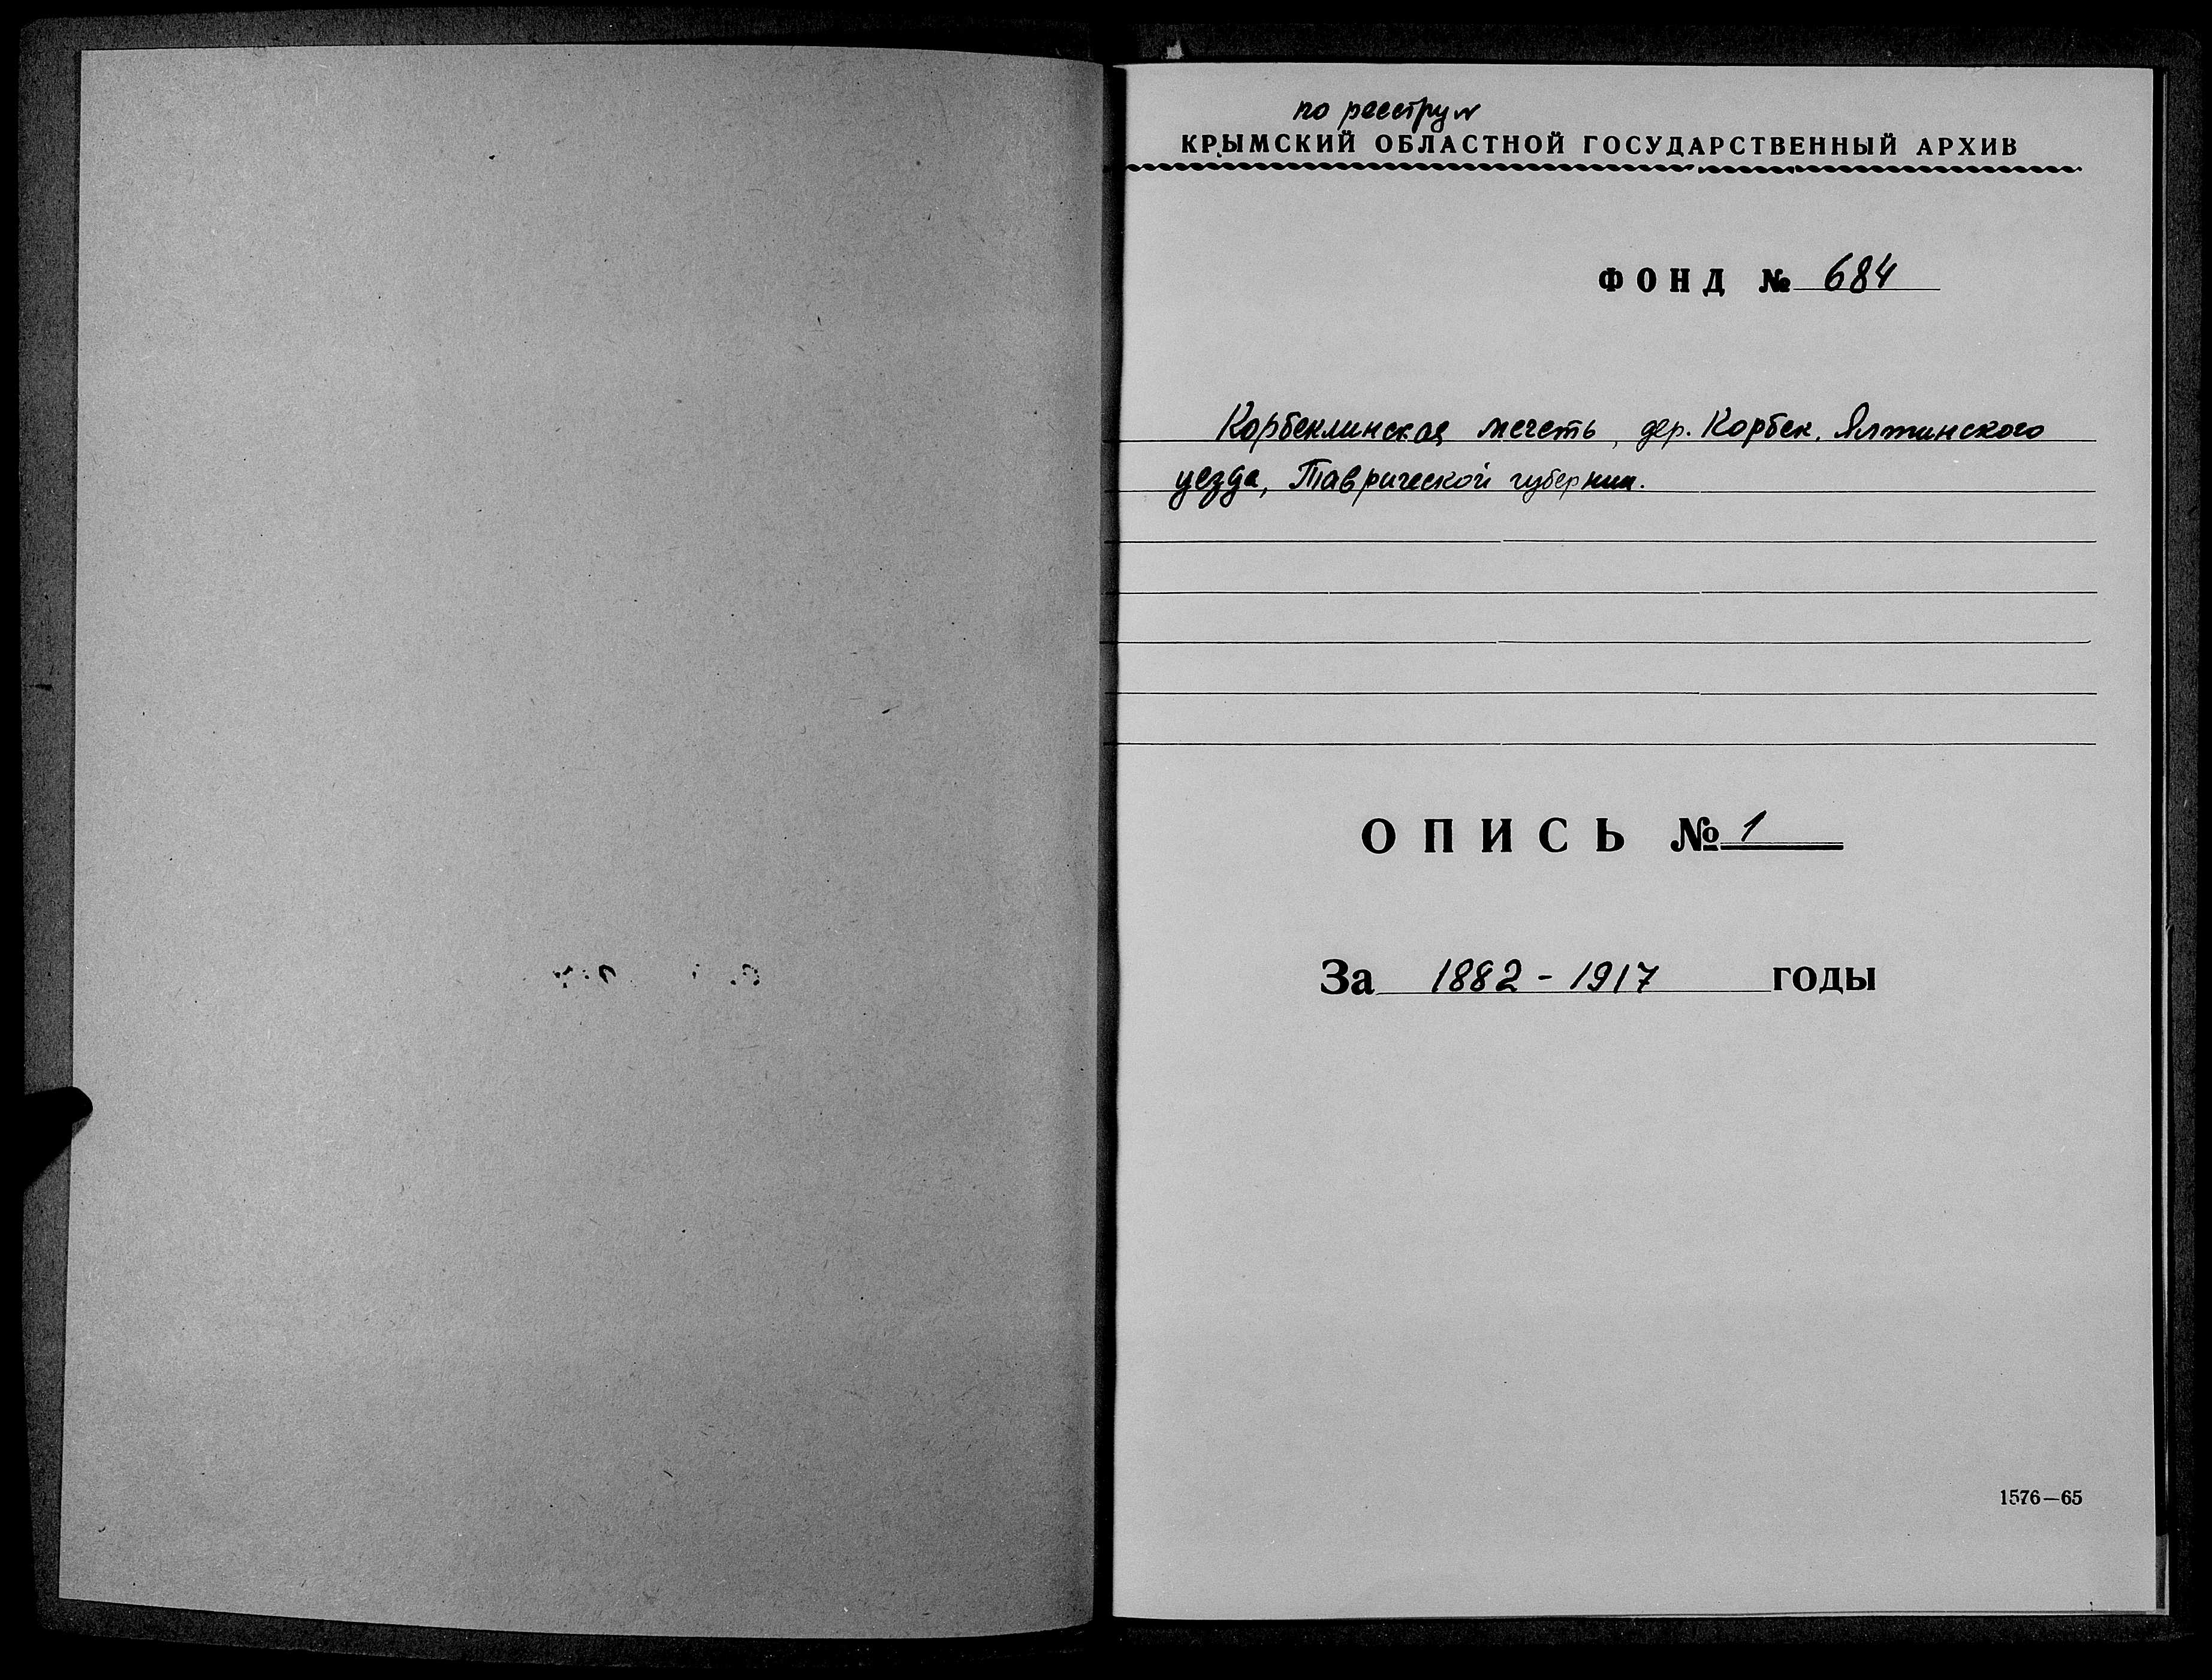 по реестру №
КРЫМСКИЙ ОБЛАСТНОЙ ГОСУДАРСТВЕННЫЙ АРХИВ
ФОНД № 684
Корбеклинская мечеть, дер. Корбек, Ялтинского
уезда, Таврической губернии.
ОПИСЬ № 1
За 1882 - 1917 годы
1576—65